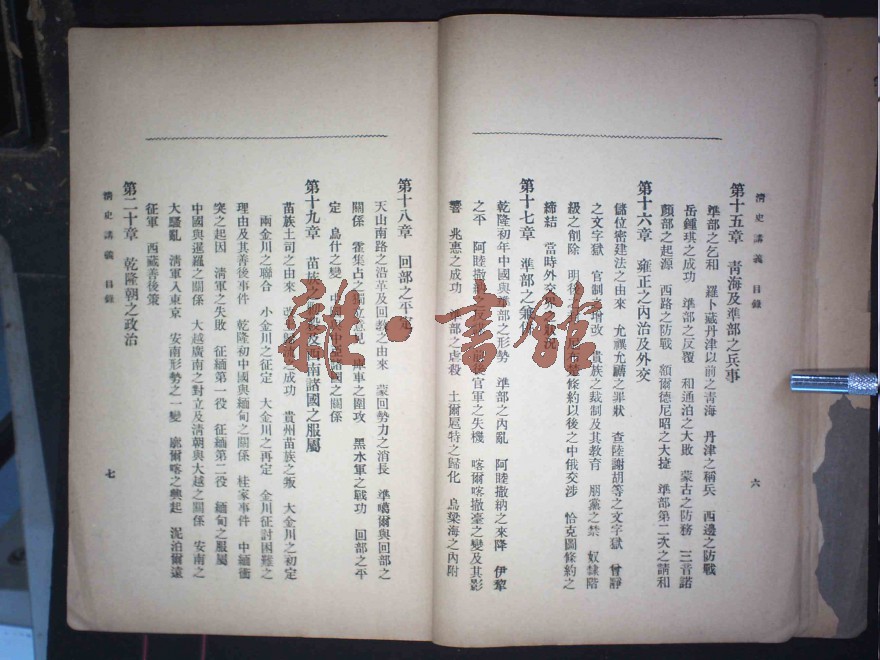 清史講義 目錄
六
第十五章 青海及準部之兵事
準部之乞和 羅卜藏丹津以前之青海 丹津之稱兵 西邊之防戰
岳鍾琪之成功 準部之反覆 和通泊之大敗 蒙古之防務 三音諾
顏部之起源 西路之防戰 額爾德尼昭之大捷 準部第二次之請和
第十六章 雍正之內治及外交
儲位密建法之由來 允禩允禟之罪狀 查陸謝胡等之文字獄 曾靜
之文字獄 官制 增改 貴族之裁制及其教育 朋黨之禁 奴隸階
級之削除 明 尼布楚條約以後之中俄交涉 恰克圖條約之
締結 當時外交
第十七章 準部之兼併
乾隆初年中國與準部之形勢 準部之內亂 阿睦撒納之來降 伊犂
之平 阿睦撒 官軍之失機 喀爾喀撤臺之變及其影
響 兆惠之成功 部之虐殺 土爾扈特之歸化 烏梁海之內附
第十八章 回部之平定
天山南路之沿革及回教之由來 蒙回勢力之消長 準噶爾與回部之
關係 霍集占之獨立 庫車之圍攻 黑水軍之戰功 回部之平
定 烏什之變 中亞諸國之關係
第十九章 苗族之 及西南諸國之服屬
苗族土司之由來 改 之成功 貴州苗族之叛 大金川之初定
兩金川之聯合 小金川之征定 大金川之再定 金川征討困難之
理由及其善後事件 乾隆初中國與緬甸之關係 桂家事件 中緬衝
突之起因 清軍之失敗 征緬第一役 征緬第二役 緬甸之服屬
中國與暹羅之關係 大越廣南之對立及清朝與大越之關係 安南之
大騷亂 清軍入東京 安南形勢之一變 廓爾喀之興起 泥泊爾遠
征軍 西藏善後策
第二十章 乾隆朝之政治
清史講義 目錄
七
雜·書館